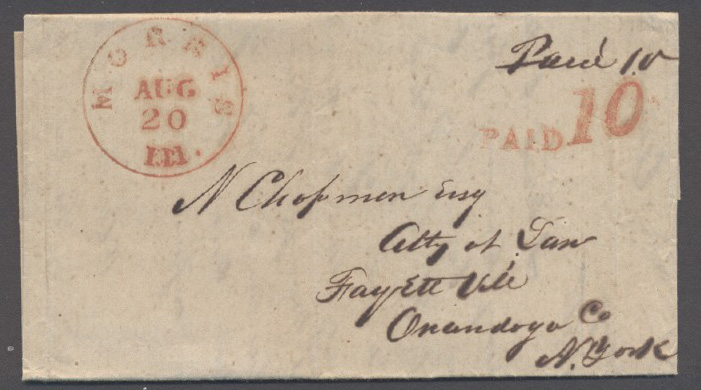 MORRIS
AUG
20
Ill.
Paid 10
PAID 10
N Chapman Esq
Atty at Law
Fayettville
Onandoga Co
N. York